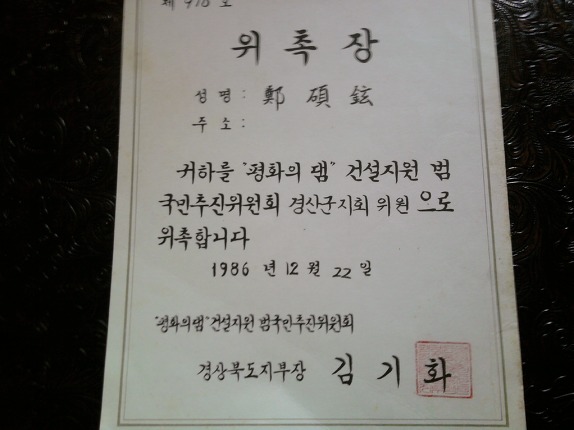 제 910 호
위촉장
성명: 鄭碩鉉
주소:
귀하를 "평화의 댐" 건설지원 범
국민추진위원회 경산군지회 위원 으로
위촉합니다
1986 년 12 월 22 일
"평화의댐"건설지원 범국민추진위원회
경상북도지부장 김기화